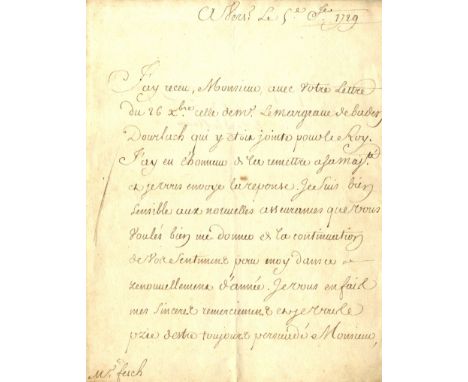 A Vers. Le 5e Jer 1729
J'ay receu, Monsieur, avec votre Lettre
du 26 xbre celle de Mr. Le margrave de bade
Dourlach qui y etoit jointe pour le Roy.
J'ay eu l'honneur de la remettre a sa maj.té
et je vous envoye la reponse. Je suis bien
sensible aux nouvelles asseurances que vous
voulés bien me donner de la continuation
de vos sentimens pour moy dans ce
renouvellement d'année. Je vous en fais
mes sinceres remerciemens et je vous
prie d'estre toujours persuadé Monsieur,
Mr. fesch